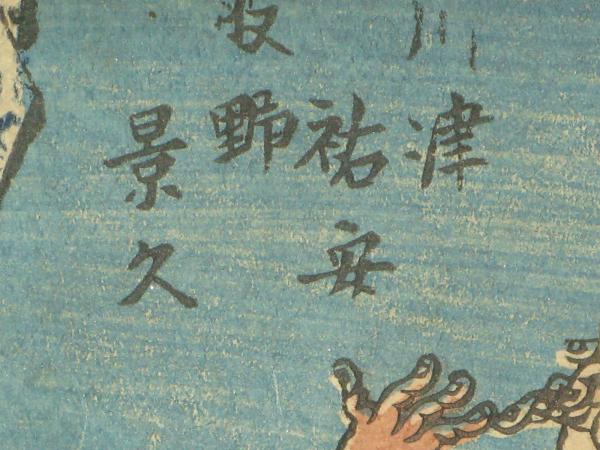 川津
祐安
牧野
景久